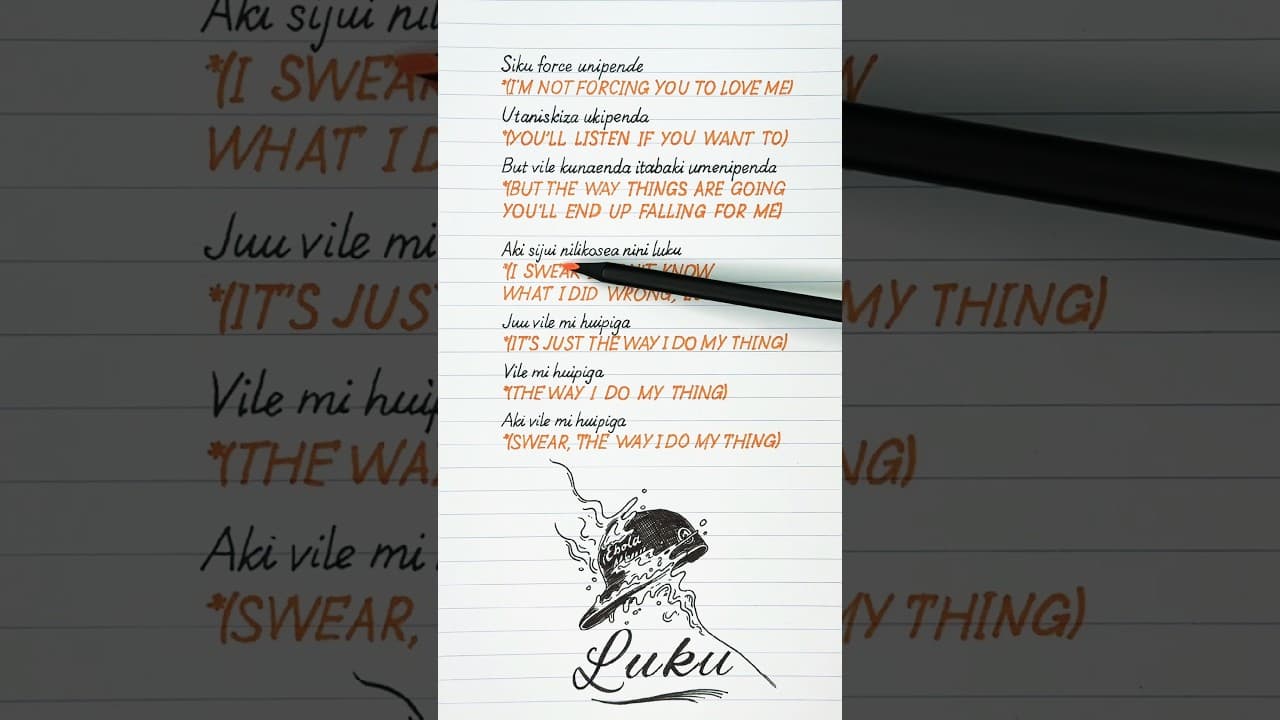 Siku force unipende
*(I'M NOT FORCING YOU TO LOVE ME)
Utaniskiza ukipenda
*(YOU'LL LISTEN IF YOU WANT TO)
But vile kunaenda itabaki umenipenda
*(BUT THE WAY THINGS ARE GOING
YOU'LL END UP FALLING FOR ME)
Aki sijui nilikosea nini luku
*(I SWEAR KNOW
WHAT I DID WRONG,
Juu vile mi huipiga
*(IT'S JUST THE WAY I DO MY THING)
Vile mi huipiga
*(THE WAY I DO MY THING)
Aki vile mi huipiga
*(SWEAR, THE WAY I DO MY THING)
Ebola
Luku